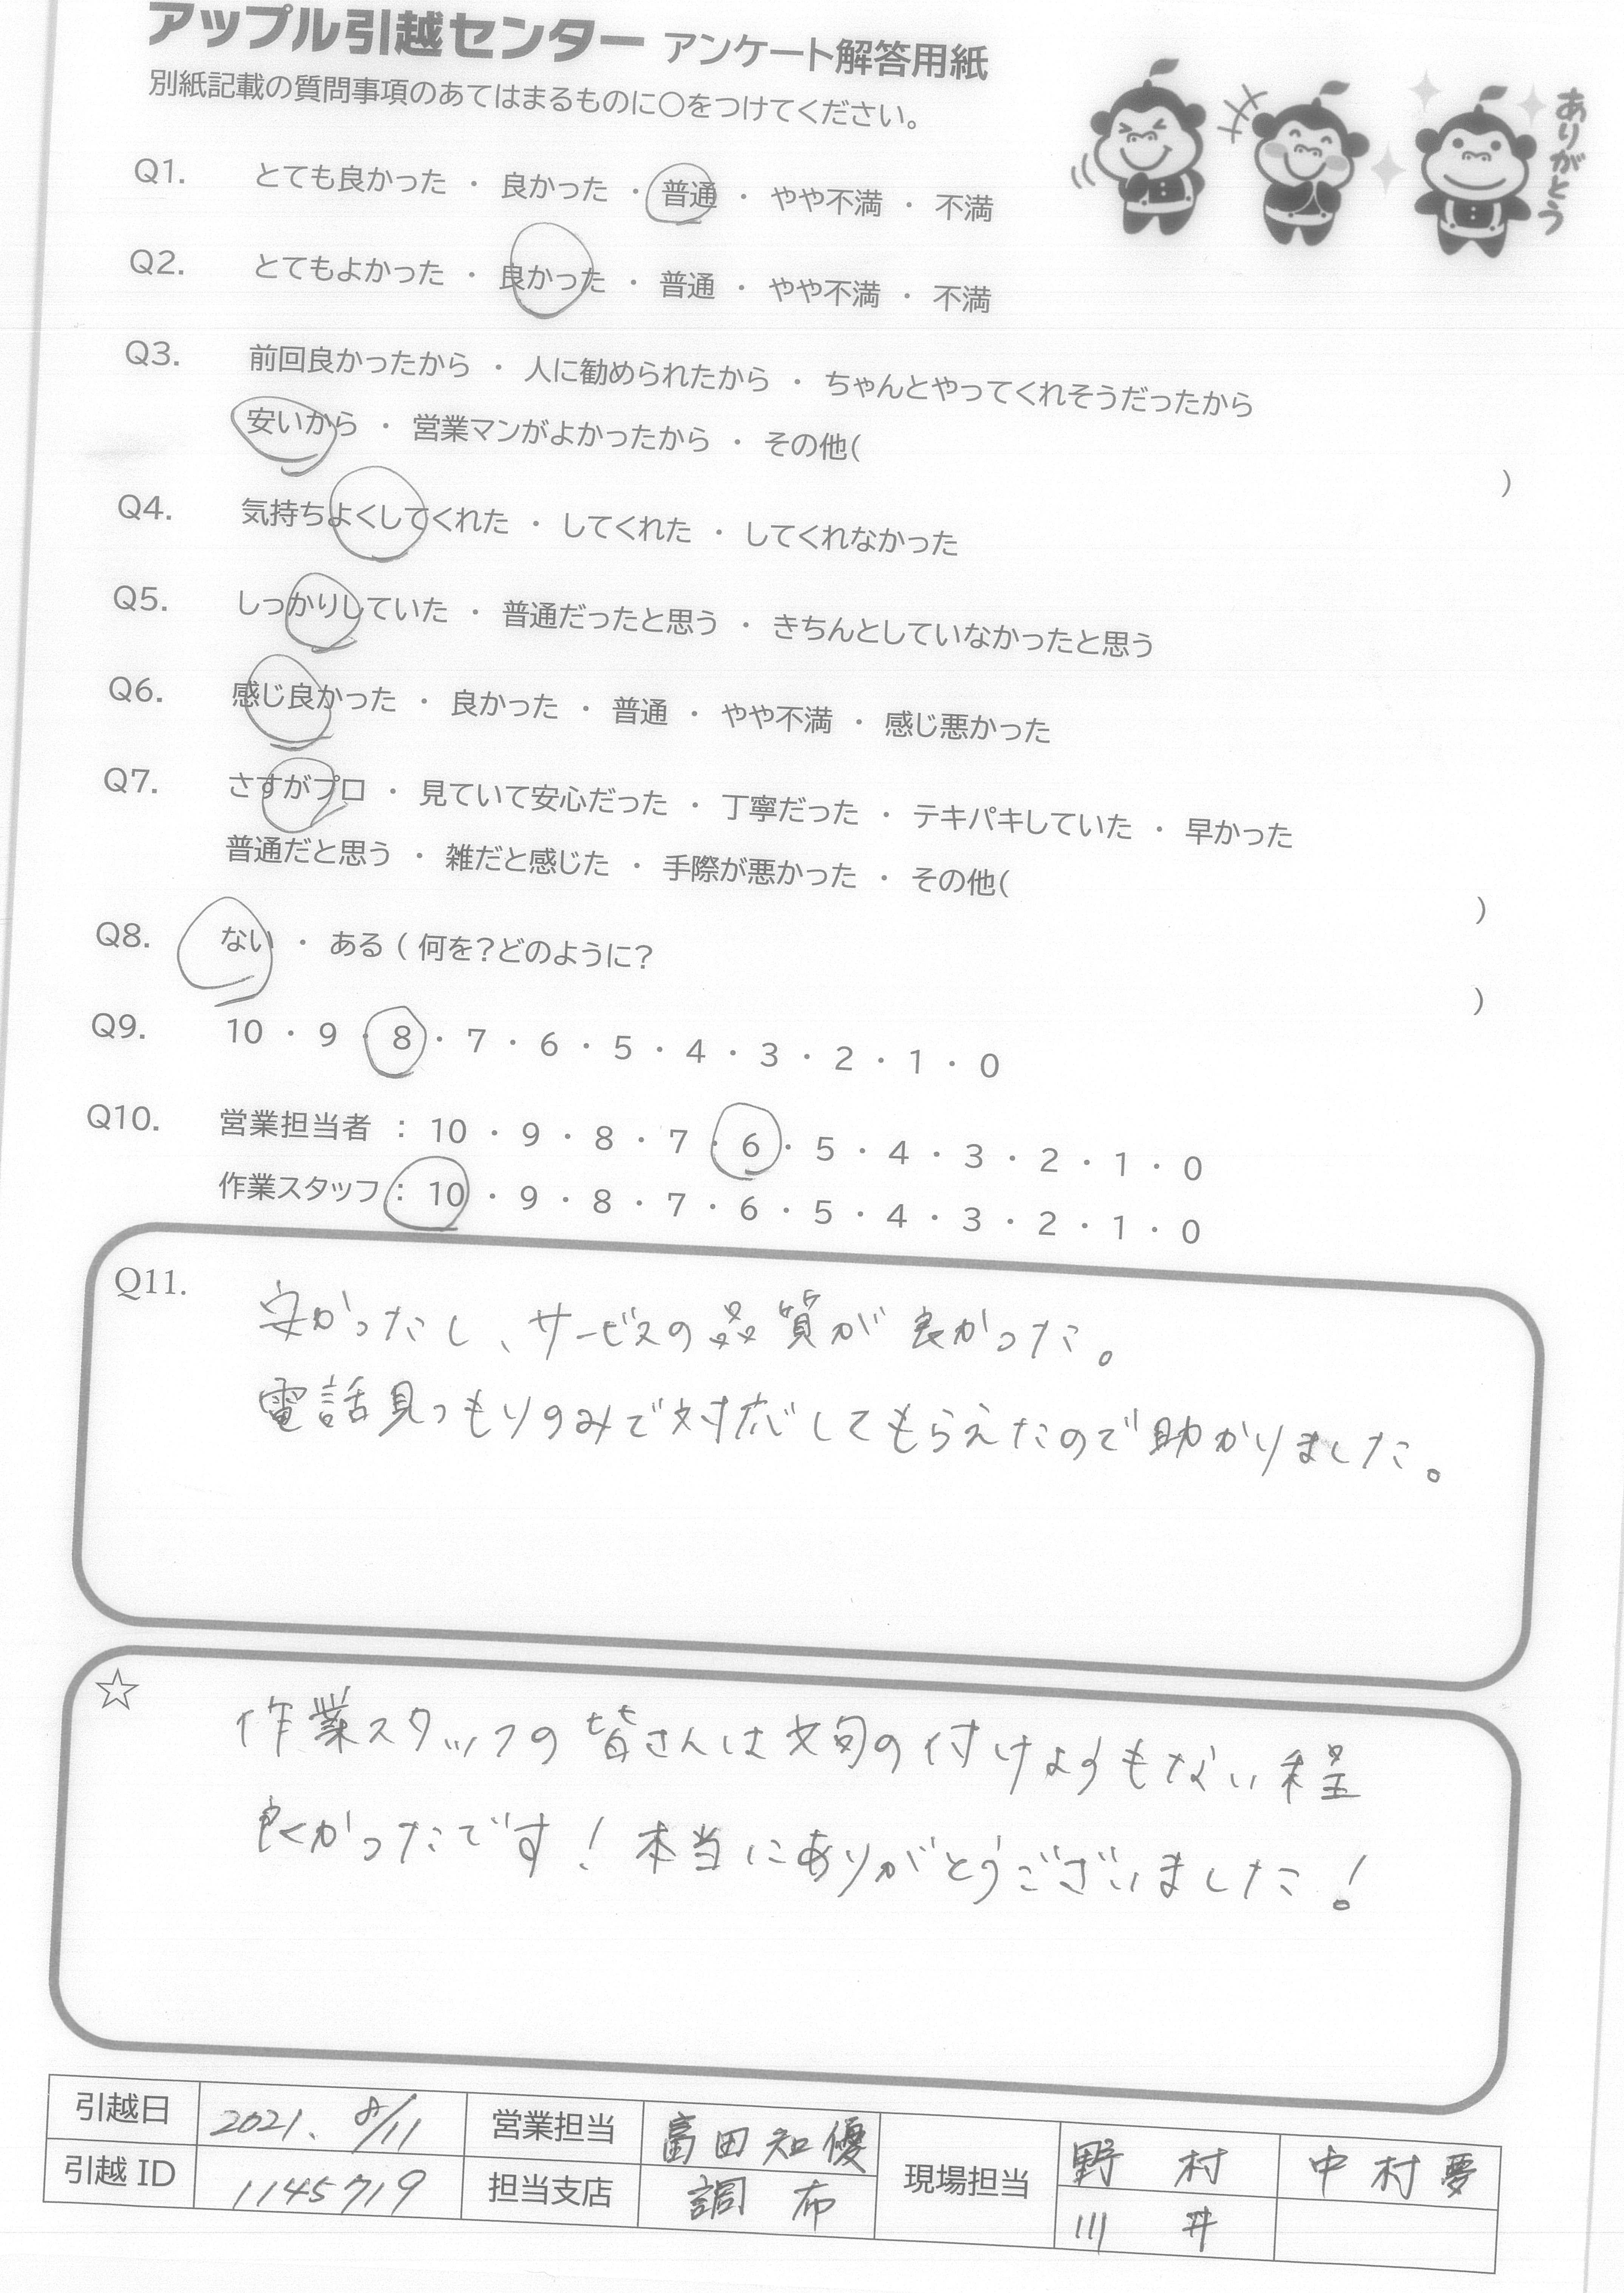 アップル引越センター アンケート解答用紙
別紙記載の質問事項のあてはまるものに○をつけてください。
ありがとう
Q1. とても良かった ・ 良かった ・ 普通 ・ やや不満 ・ 不満
Q2. とてもよかった ・ 良かった ・ 普通 ・ やや不満 ・ 不満
Q3. 前回良かったから ・ 人に勧められたから ・ ちゃんとやってくれそうだったから
安いから ・ 営業マンがよかったから ・ その他( )
Q4. 気持ちよくしてくれた ・ してくれた ・ してくれなかった
Q5. しっかりしていた ・ 普通だったと思う ・ きちんとしていなかったと思う
Q6. 感じ良かった ・ 良かった ・ 普通 ・ やや不満 ・ 感じ悪かった
Q7. さすがプロ ・ 見ていて安心だった ・ 丁寧だった ・ テキパキしていた ・ 早かった
普通だと思う ・ 雑だと感じた ・ 手際が悪かった ・ その他( )
Q8. ない ・ ある ( 何を?どのように? )
Q9. 10 ・ 9 ・ 8 ・ 7 ・ 6 ・ 5 ・ 4 ・ 3 ・ 2 ・ 1 ・ 0
Q10. 営業担当者 : 10 ・ 9 ・ 8 ・ 7 ・ 6 ・ 5 ・ 4 ・ 3 ・ 2 ・ 1 ・ 0
作業スタッフ : 10 ・ 9 ・ 8 ・ 7 ・ 6 ・ 5 ・ 4 ・ 3 ・ 2 ・ 1 ・ 0
Q11. 安かったし、サービスの品質が良かった。
電話見つもりのみで対応してもらえたので助かりました。
☆ 作業スタッフの皆さんは文句の付けようもない程
良くかったです！本当にありがとうございました！
引越日 2021. 8/11 営業担当 富田知優 現場担当 野村 中村夢
引越 ID 1145719 担当支店 調布 川井